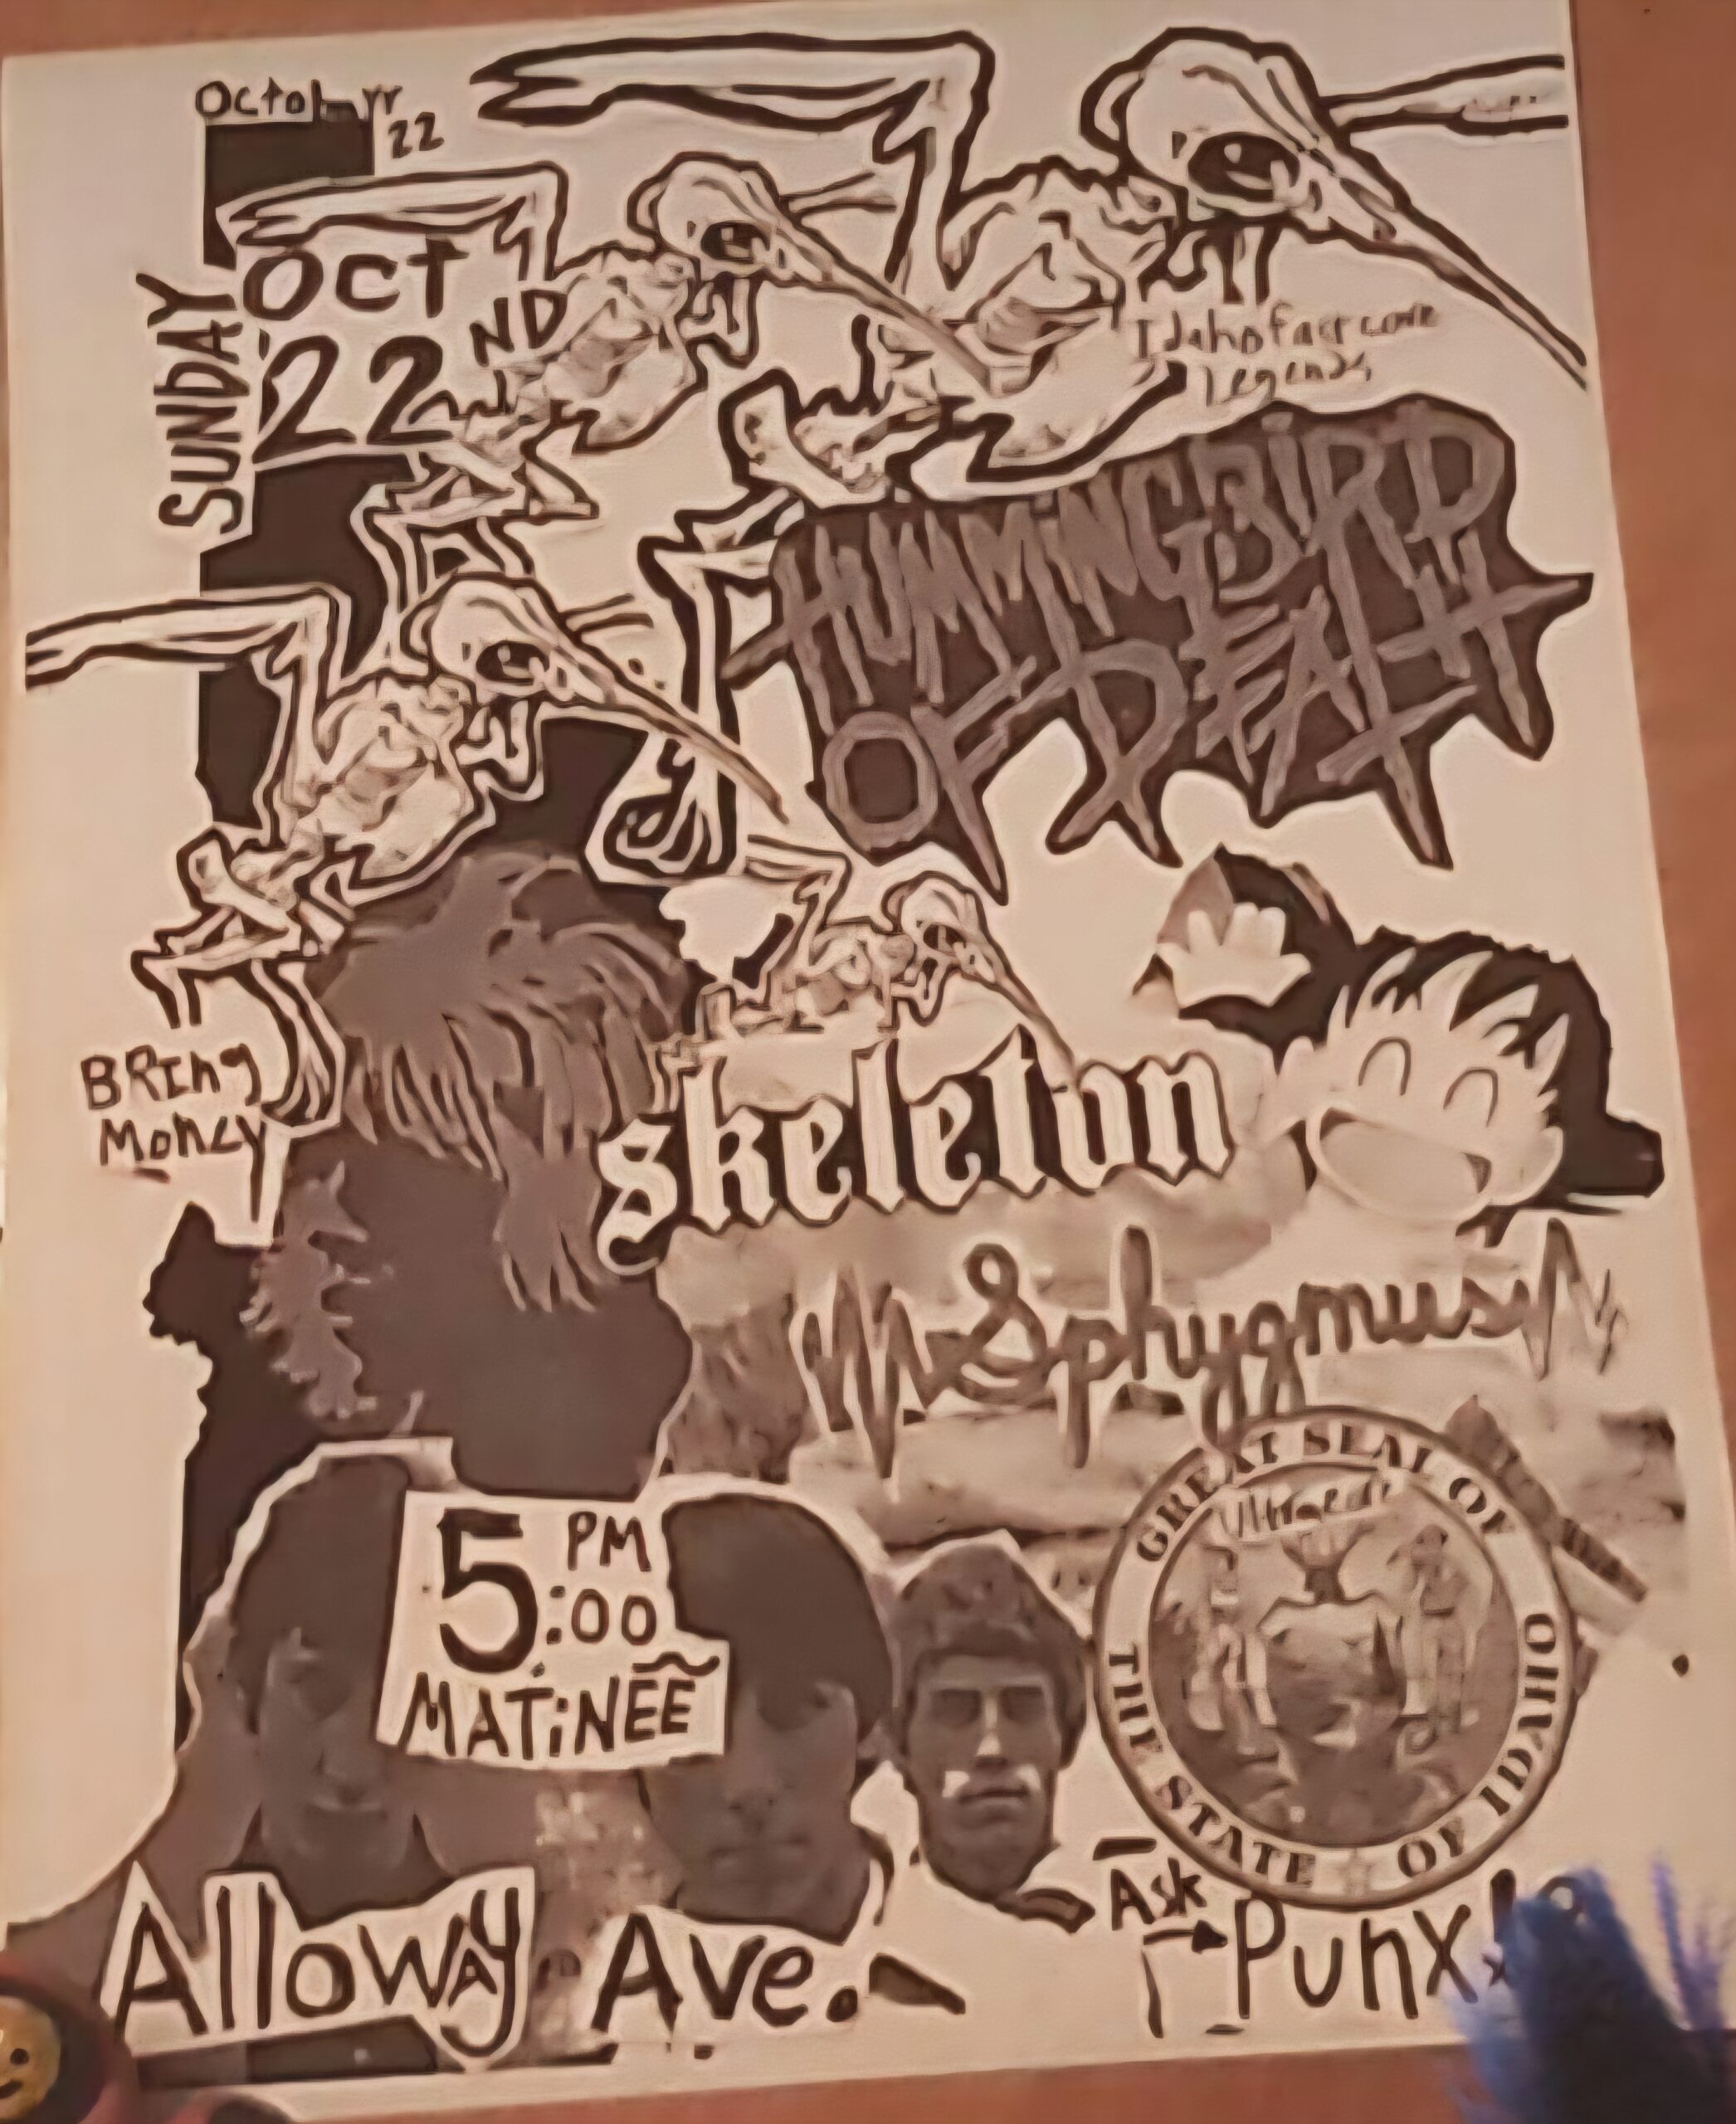 22
SUNDAY
OCT
22ND
Idaho fastcore
Legends
HUMMiNGBiRD
OF DEATH
BRIng
Money
skeleton
Sphygmus
GREAT SEAL OF
THE STATE OF IDAHO
5:00 PM
MATiNEE
Ask
Punx!
Alloway Ave.